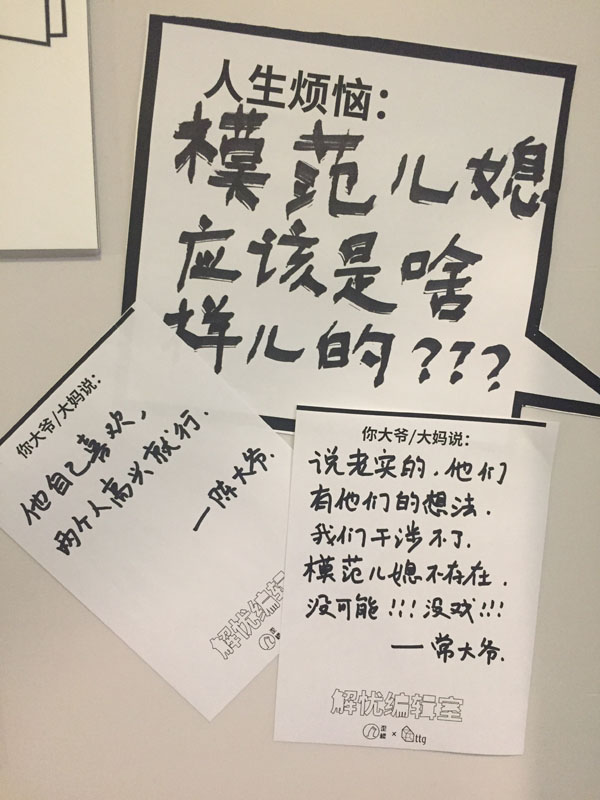 人生烦恼：
模范儿媳
应该是啥
样儿的???
你大爷/大妈说：
他自己喜欢，
两个人高兴就行.
—陈大爷.
解忧编辑室
你大爷/大妈说：
说老实的.他们
有他们的想法.
我们干涉不了.
模范儿媳不存在.
没可能!!!没戏!!!
—常大爷.
解忧编辑室
歪麟 × ttg